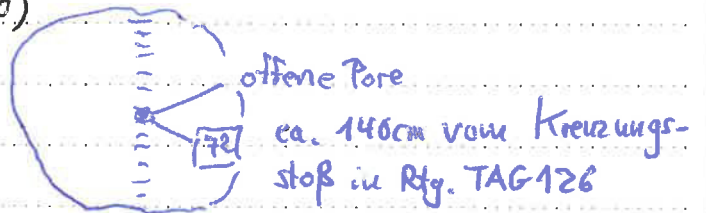 a)
offene Pore
72 ca. 140cm vom Kreuzungs-
stoß in Rtg. TAG126